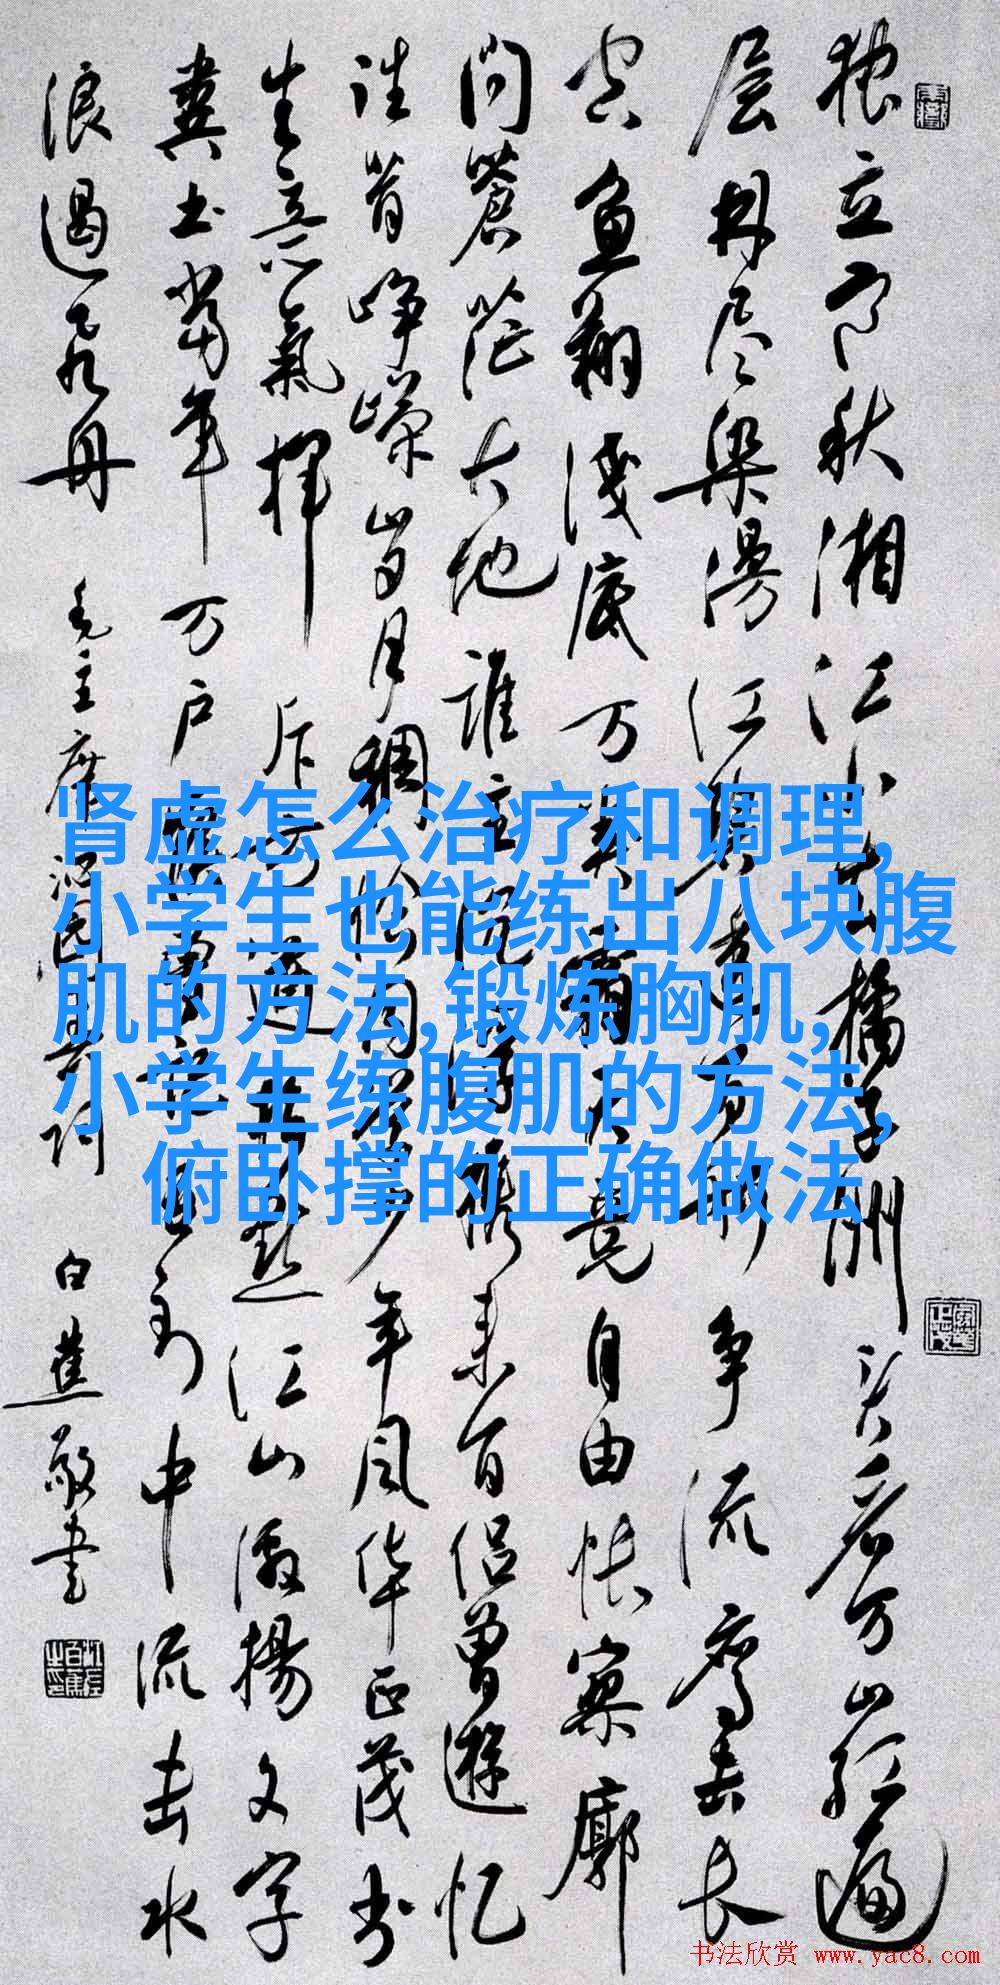 独立寒秋湘江北去橘子洲头看万山红遍
层林尽染漫江碧透百舸争流鹰击长
空鱼翔浅底万类霜天竞自由怅寥廓
问蒼茫大地誰主沉浮携来百侣曾遊忆
往昔峥嵘岁月稠恰同学少年风华正茂书
生意氣揮斥方遒指点江山激揚文字
粪土当年万户侯曾记否到中流击水
浪遏飞舟 毛主席沁园春长沙 白蕉敬书
肾虚怎么治疗和调理,
小学生也能练出八块腹
肌的方法,锻炼胸肌,
小学生练腹肌的方法,
俯卧撑的正确做法
书法欣赏 www.yac8.com